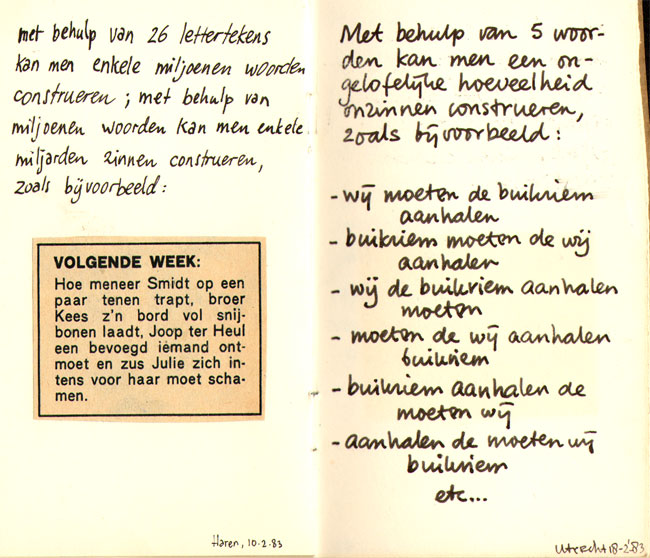 met behulp van 26 lettertekens
kan men enkele miljoenen woorden
construeren ; met behulp van
miljoenen woorden kan men enkele
miljarden zinnen construeren,
zoals bijvoorbeeld :
VOLGENDE WEEK:
Hoe meneer Smidt op een
paar tenen trapt, broer
Kees z'n bord vol snij-
bonen laadt, Joop ter Heul
een bevoegd iémand ont-
moet en zus Julie zich in-
tens voor haar moet scha-
men.
Haren, 10-2-83
Met behulp van 5 woor-
den kan men een on-
gelofelijke hoeveelheid
onzinnen construeren,
zoals bijvoorbeeld :
- wij moeten de buikriem
aanhalen
- buikriem moeten de wij
aanhalen
- wij de buikriem aanhalen
moeten
- moeten de wij aanhalen
buikriem
- buikriem aanhalen de
moeten wij
- aanhalen de moeten wij
buikriem
etc...
Utrecht 18-2-'83